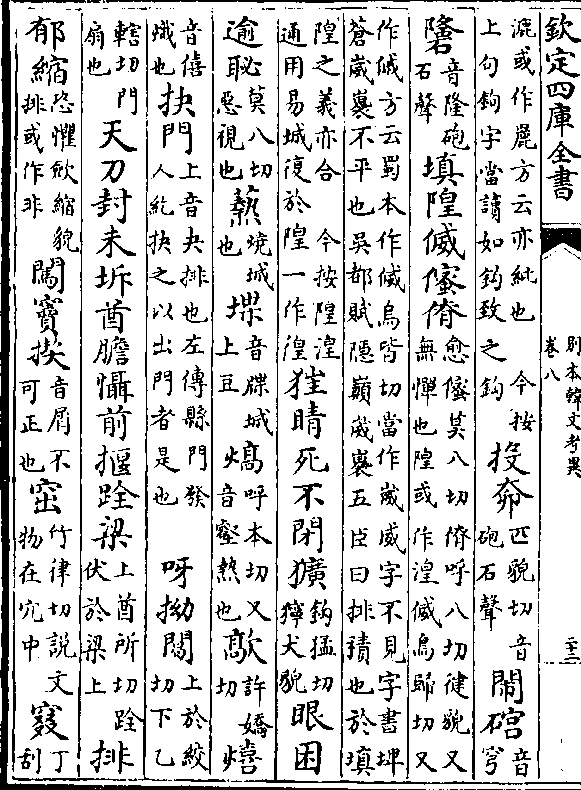 欽定四庫全書
別本韓文考異
卷八
漉或作麗方云亦紕也 今按
上句鉤字當讀如鉤致之鉤
投奅
匹貌切音
砲石聲
鬧䃔
音
穹
䃧
音隆砲
石聲
填隍㒂㑻傄
愈㑻莫八切傄呼八切健貌又
無憚也隍或作湟㒂烏歸切又
作㒂方云蜀本作㒂烏皆切當作崴崴字不見字書埤
蒼崴裹不平也吳都賦隱巔崴裹五臣曰排積也於填
隍之義亦合 今按隍湟
通用易城復於隍一作徨
猚睛死不閉獷
鉤猛切
獰犬貌
眼困
逾䀛
莫八切
惡視也
爇
燒城
也
堞
音牒城
上豆
熇
呼本切又
音壑熱也
歊
許嬌
切
熺
音僖
熾也
抉門
上音夬排也左傳縣門發
人紇抉之以出門者是也
呀拗閜
上於絞
切下乙
轄切門
扇也
天刀封未坼酋膽懾前揠跧梁
上酋所切跧
伏於梁上
排
郁縮
恐懼歛縮貌
排或作非
闖竇揳
音屑不
可正也
窋
竹律切説文
物在穴中
窡
丁
刮